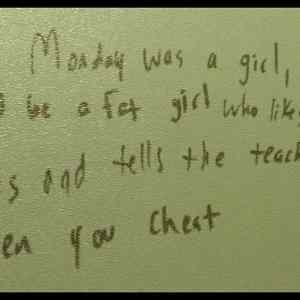 Monday was a girl,
be a fat girl who likes
s and tells the teach
en you cheat